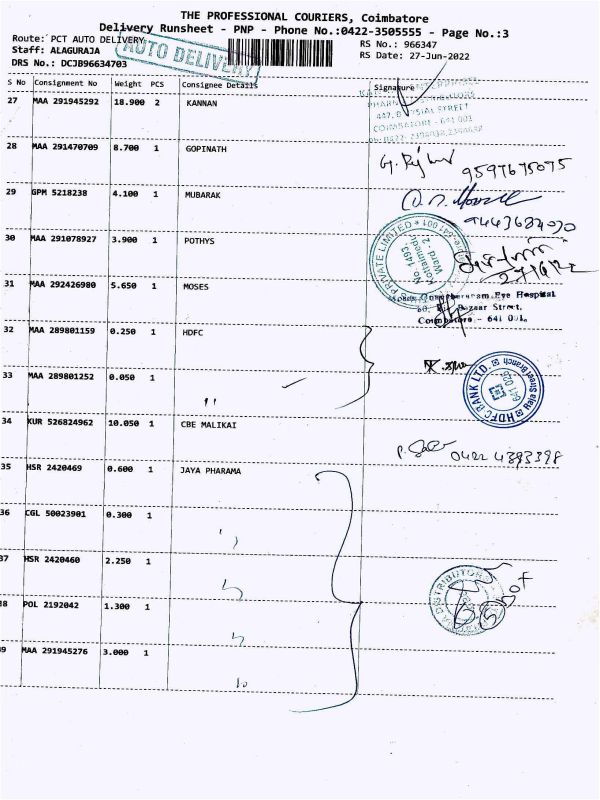 THE PROFESSIONAL COURIERS, Coimbatore
Delivery Runsheet - PNP - Phone No.:0422-3505555 - Page No.:3
Route: PCT AUTO DELIVERY
RS No.: 966347
Staff: ALAGURAJA
RS Date: 27-Jun-2022
DRS No.: DCJB96634703
AUTO DELIVERY
S No Consignment No Weight PCS Consignee Details Signature
27 MAA 291945292 18.900 2 KANNAN
STREET
COIMBATORE - 641 001
28 MAA 291470709 8.700 1 GOPINATH
9597675075
29 GPM 5218238 4.100 1 MUBARAK
9443684030
30 MAA 291078927 3.900 1 POTHYS
PRIVATE LIMITED
No. 1493
Kottaimedu
Ward - 2
31 MAA 292426980 5.650 1 MOSES
Eye Hospital
Bazaar Street,
Coimbatore - 641 001.
32 MAA 289801159 0.250 1 HDFC
33 MAA 289801252 0.050 1
HDFC BANK LTD.
Raja Street Branch
34 KUR 526824962 10.050 1 CBE MALIKAI
0422 4393398
35 HSR 2420469 0.600 1 JAYA PHARAMA
36 CGL 50023901 0.300 1
37 HSR 2420460 2.250 1
DISTRIBUTORS
38 POL 2192042 1.300 1
39 MAA 291945276 3.000 1